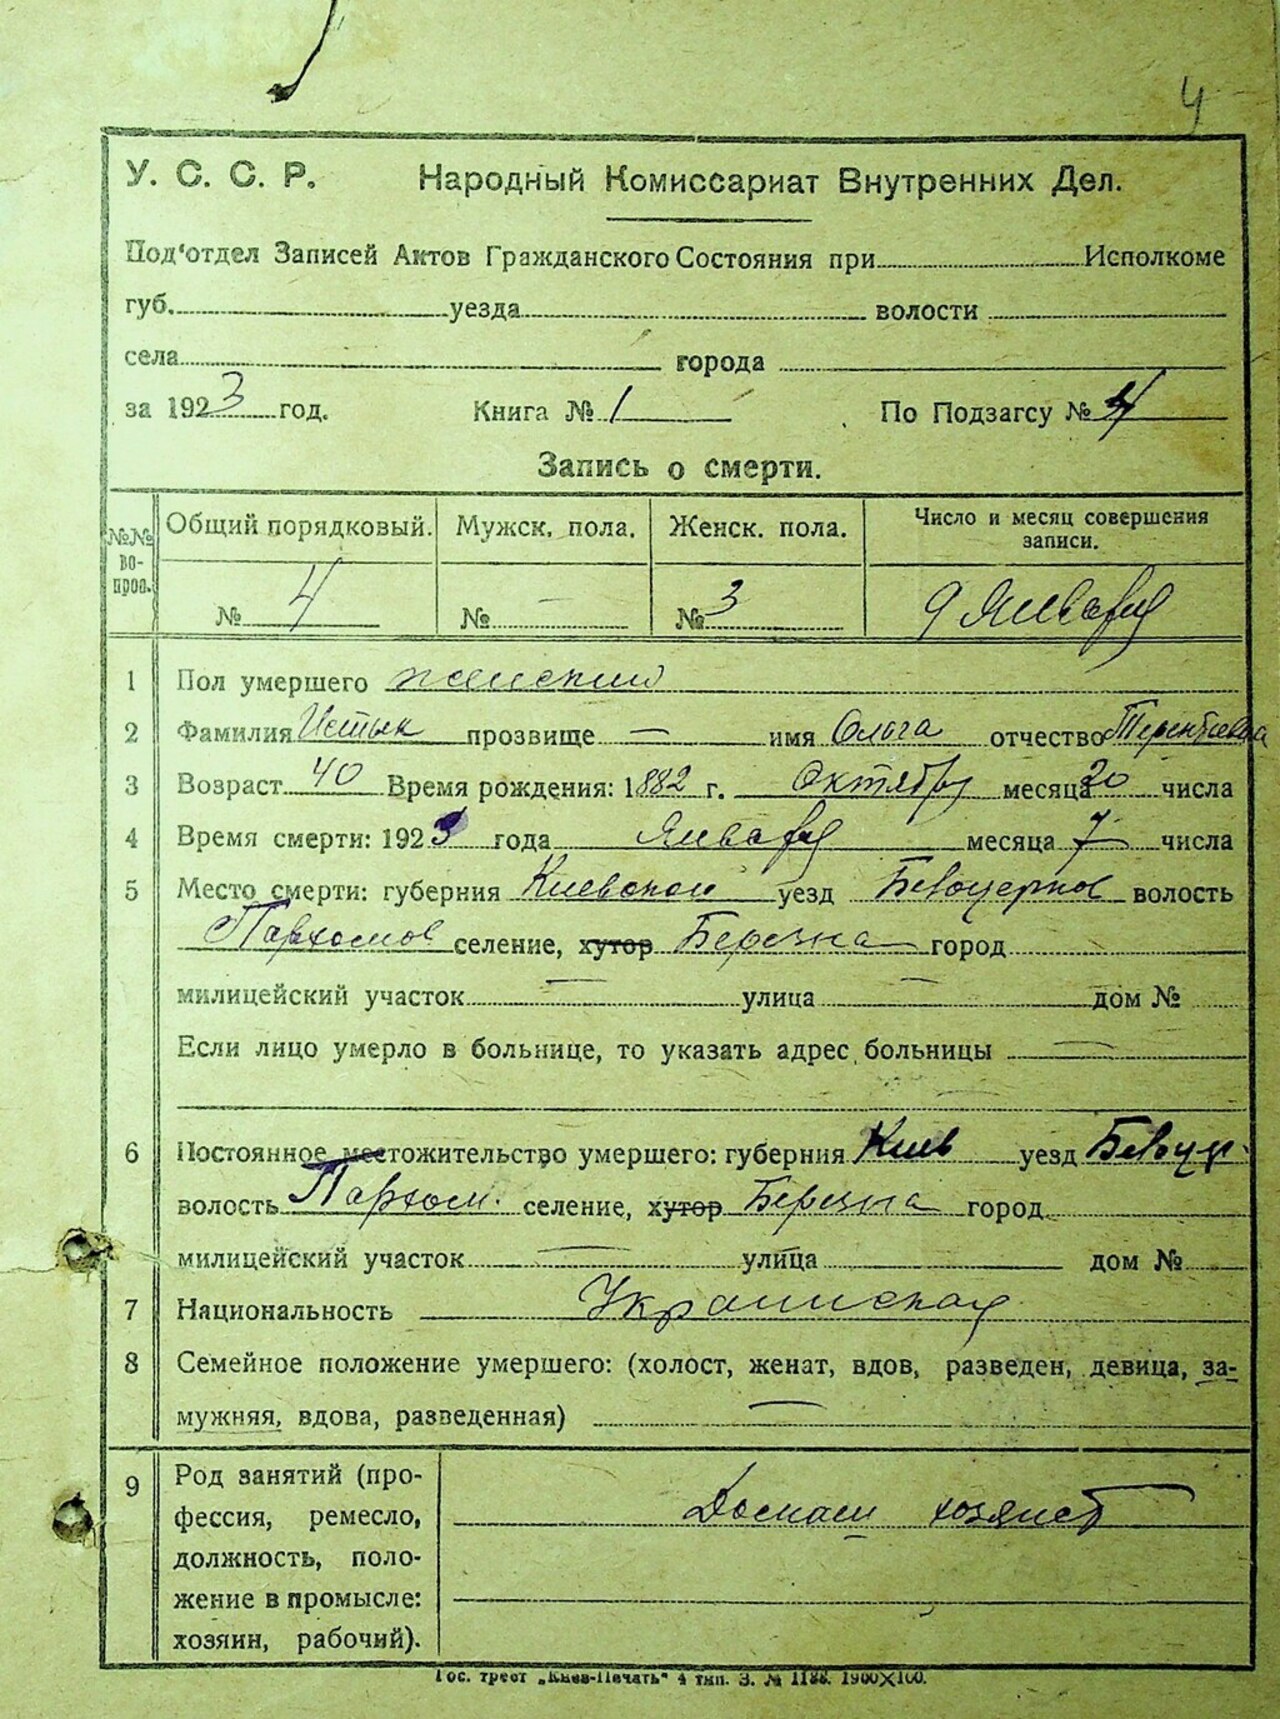 4
У. С. С. Р. Народный Комиссариат Внутренних Дел.
Под'отдел Записей Актов Гражданского Состояния при Исполкоме
губ. уезда волости
села города
за 1923 год. Книга № 1 По Подзагсу № 4
Запись о смерти.
№№ во-прос. Общий порядковый. Мужск. пола. Женск. пола. Число и месяц совершения записи.
№ 4 № — № 3 9 Января
1 Пол умершего женский
2 Фамилия прозвище — имя Ольга отчество Терентьевна
3 Возраст 40 Время рождения: 1882 г. Октября месяца 20 числа
4 Время смерти: 1923 года Января месяца 7 числа
5 Место смерти: губерния Киевской уезд Белоцерков волость
Пархомов селение, хутор Березна город
милицейский участок — улица — дом №
Если лицо умерло в больнице, то указать адрес больницы —
6 Постоянное местожительство умершего: губерния Киев уезд Белоцер.
волость Пархом. селение, хутор Березна город
милицейский участок — улица — дом №
7 Национальность Украинская
8 Семейное положение умершего: (холост, женат, вдов, разведен, девица, за-
мужняя, вдова, разведенная) —
9 Род занятий (про-
фессия, ремесло, Домаш хозяйст
должность, поло-
жение в промысле:
хозяин, рабочий).
Гос. трест „Киев-Печать“ 4 тип. З. № 1188. 1900X100.